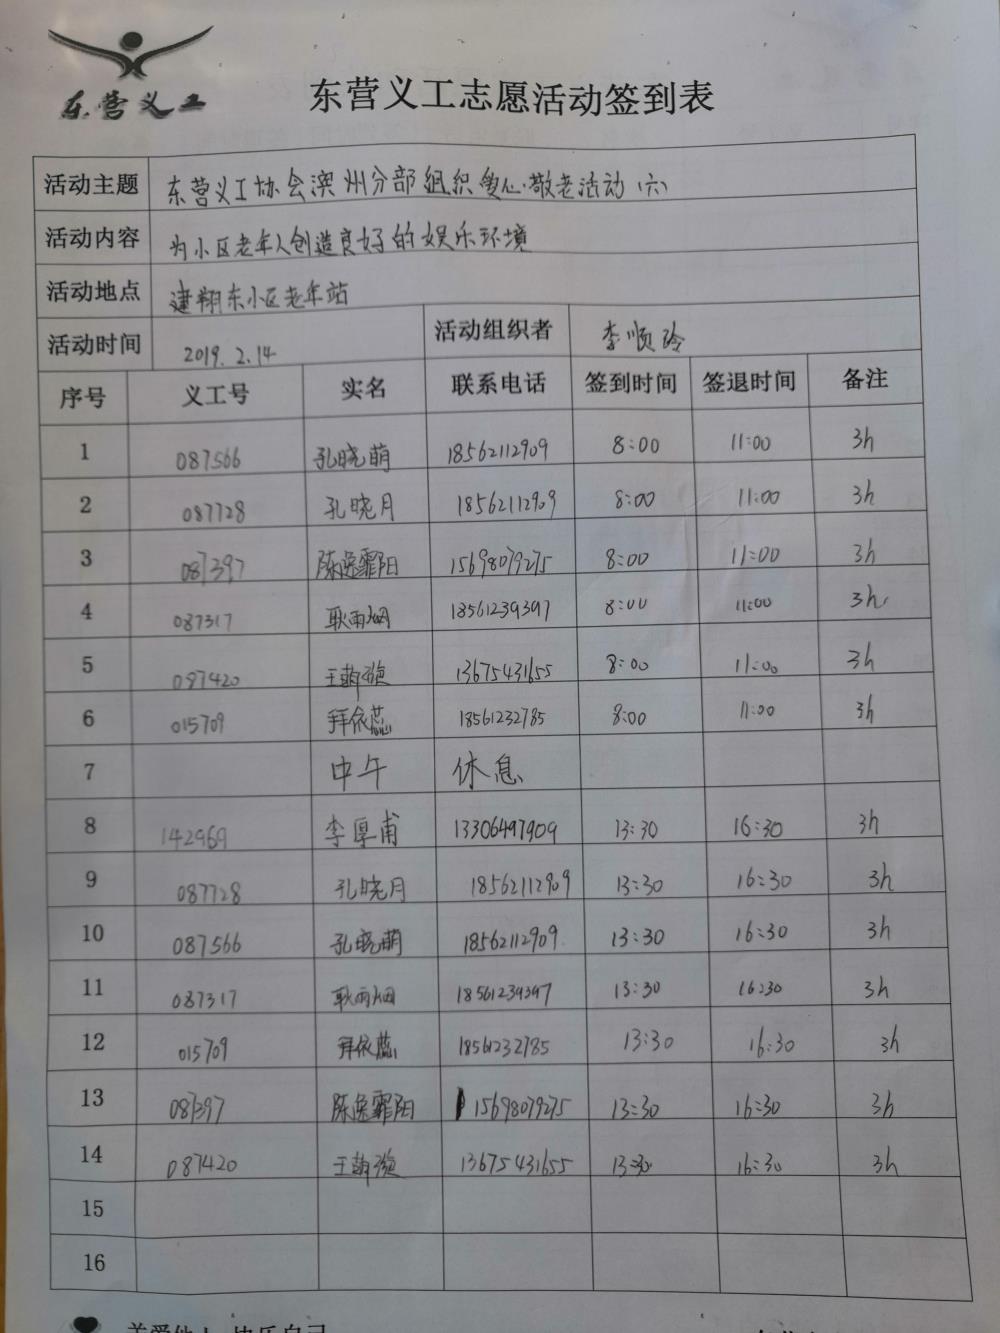 东营义工
东营义工志愿活动签到表
活动主题 东营义工协会滨州分部组织爱心敬老活动(六)
活动内容 为小区老年人创造良好的娱乐环境
活动地点 建翔东小区老年站
活动时间 2019.2.14 活动组织者 李顺玲
序号 义工号 实名 联系电话 签到时间 签退时间 备注
1 087566 孔晓萌 18562112909 8:00 11:00 3h
2 087728 孔晓月 18562112909 8:00 11:00 3h
3 087397 陈逸霏阳 15698079275 8:00 11:00 3h
4 087317 耿雨烟 18561239397 8:00 11:00 3h
5 087420 王 13675431655 8:00 11:00 3h
6 015709 拜依蕊 18561232785 8:00 11:00 3h
7 中午 休息
8 142969 李厚甫 13306497909 13:30 16:30 3h
9 087728 孔晓月 18562112909 13:30 16:30 3h
10 087566 孔晓萌 18562112909 13:30 16:30 3h
11 087317 耿雨烟 18561239397 13:30 16:30 3h
12 015709 拜依蕊 18561232785 13:30 16:30 3h
13 087397 陈逸霏阳 15698079275 13:30 16:30 3h
14 087420 王 13675431655 13:30 16:30 3h
15
16